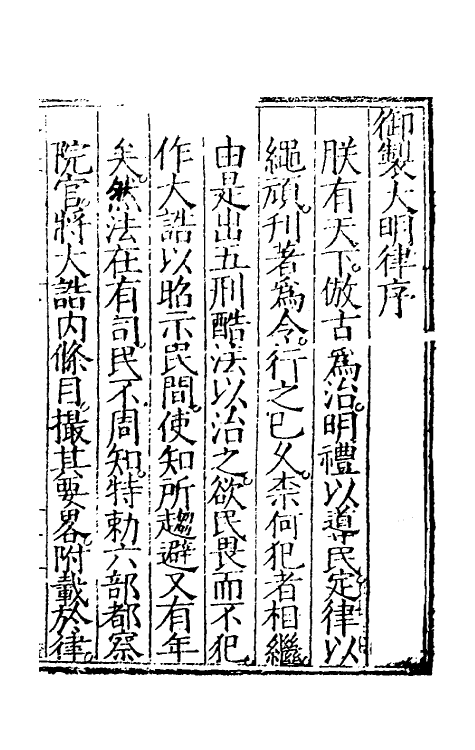 御製大明律序
朕有天下。倣古爲治。明禮以導民。定律以
繩頑。刋著爲令。行之已久。柰何犯者相繼。
由是出五刑酷法以治之。欲民畏而不犯。
作大誥以昭示民間。使知所趨避。又有年
矣。然法在有司。民不周知。特勅六部都察
院官。將大誥內條目。撮其要畧。附載於律。